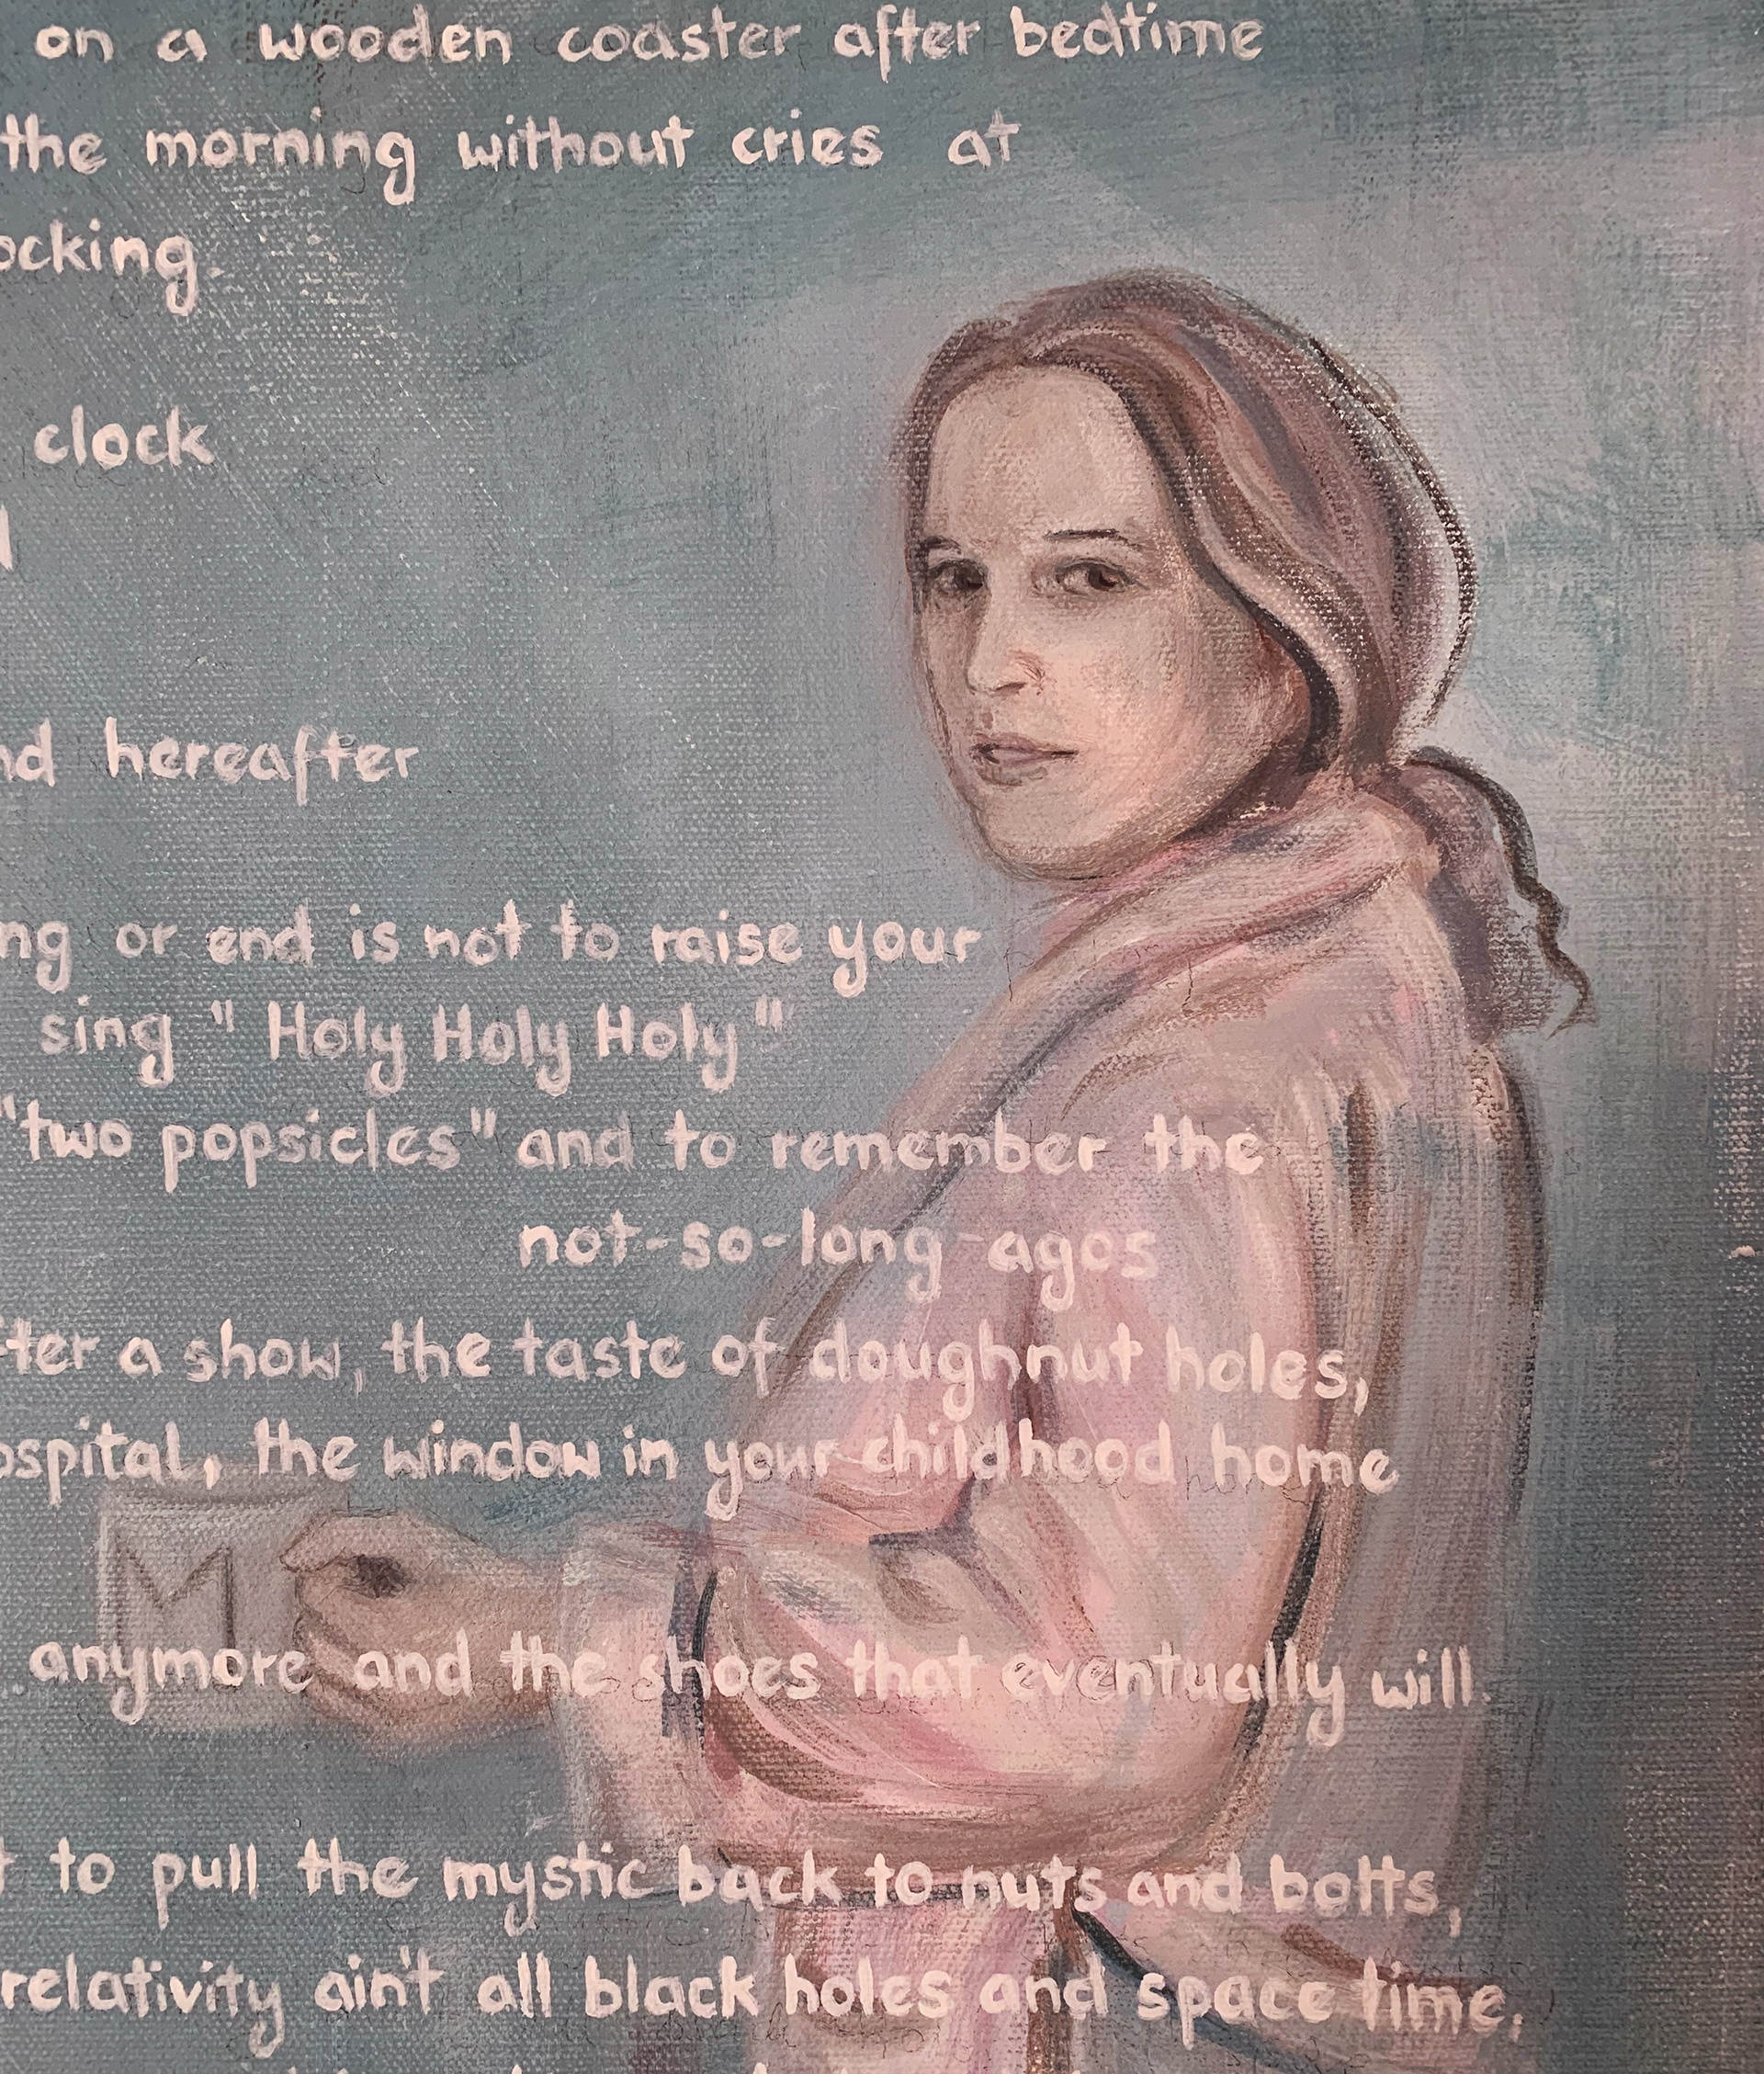 on a wooden coaster after bedtime
the morning without cries at
ocking.
clock
nd hereafter
ng or end is not to raise your
sing "Holy Holy Holy"
"two popsicles" and to remember the
not-so-long-agos
ter a show, the taste of doughnut holes,
ospital, the window in your childhood home
M
anymore and the shoes that eventually will.
to pull the mystic back to nuts and bolts,
relativity ain't all black holes and space time.